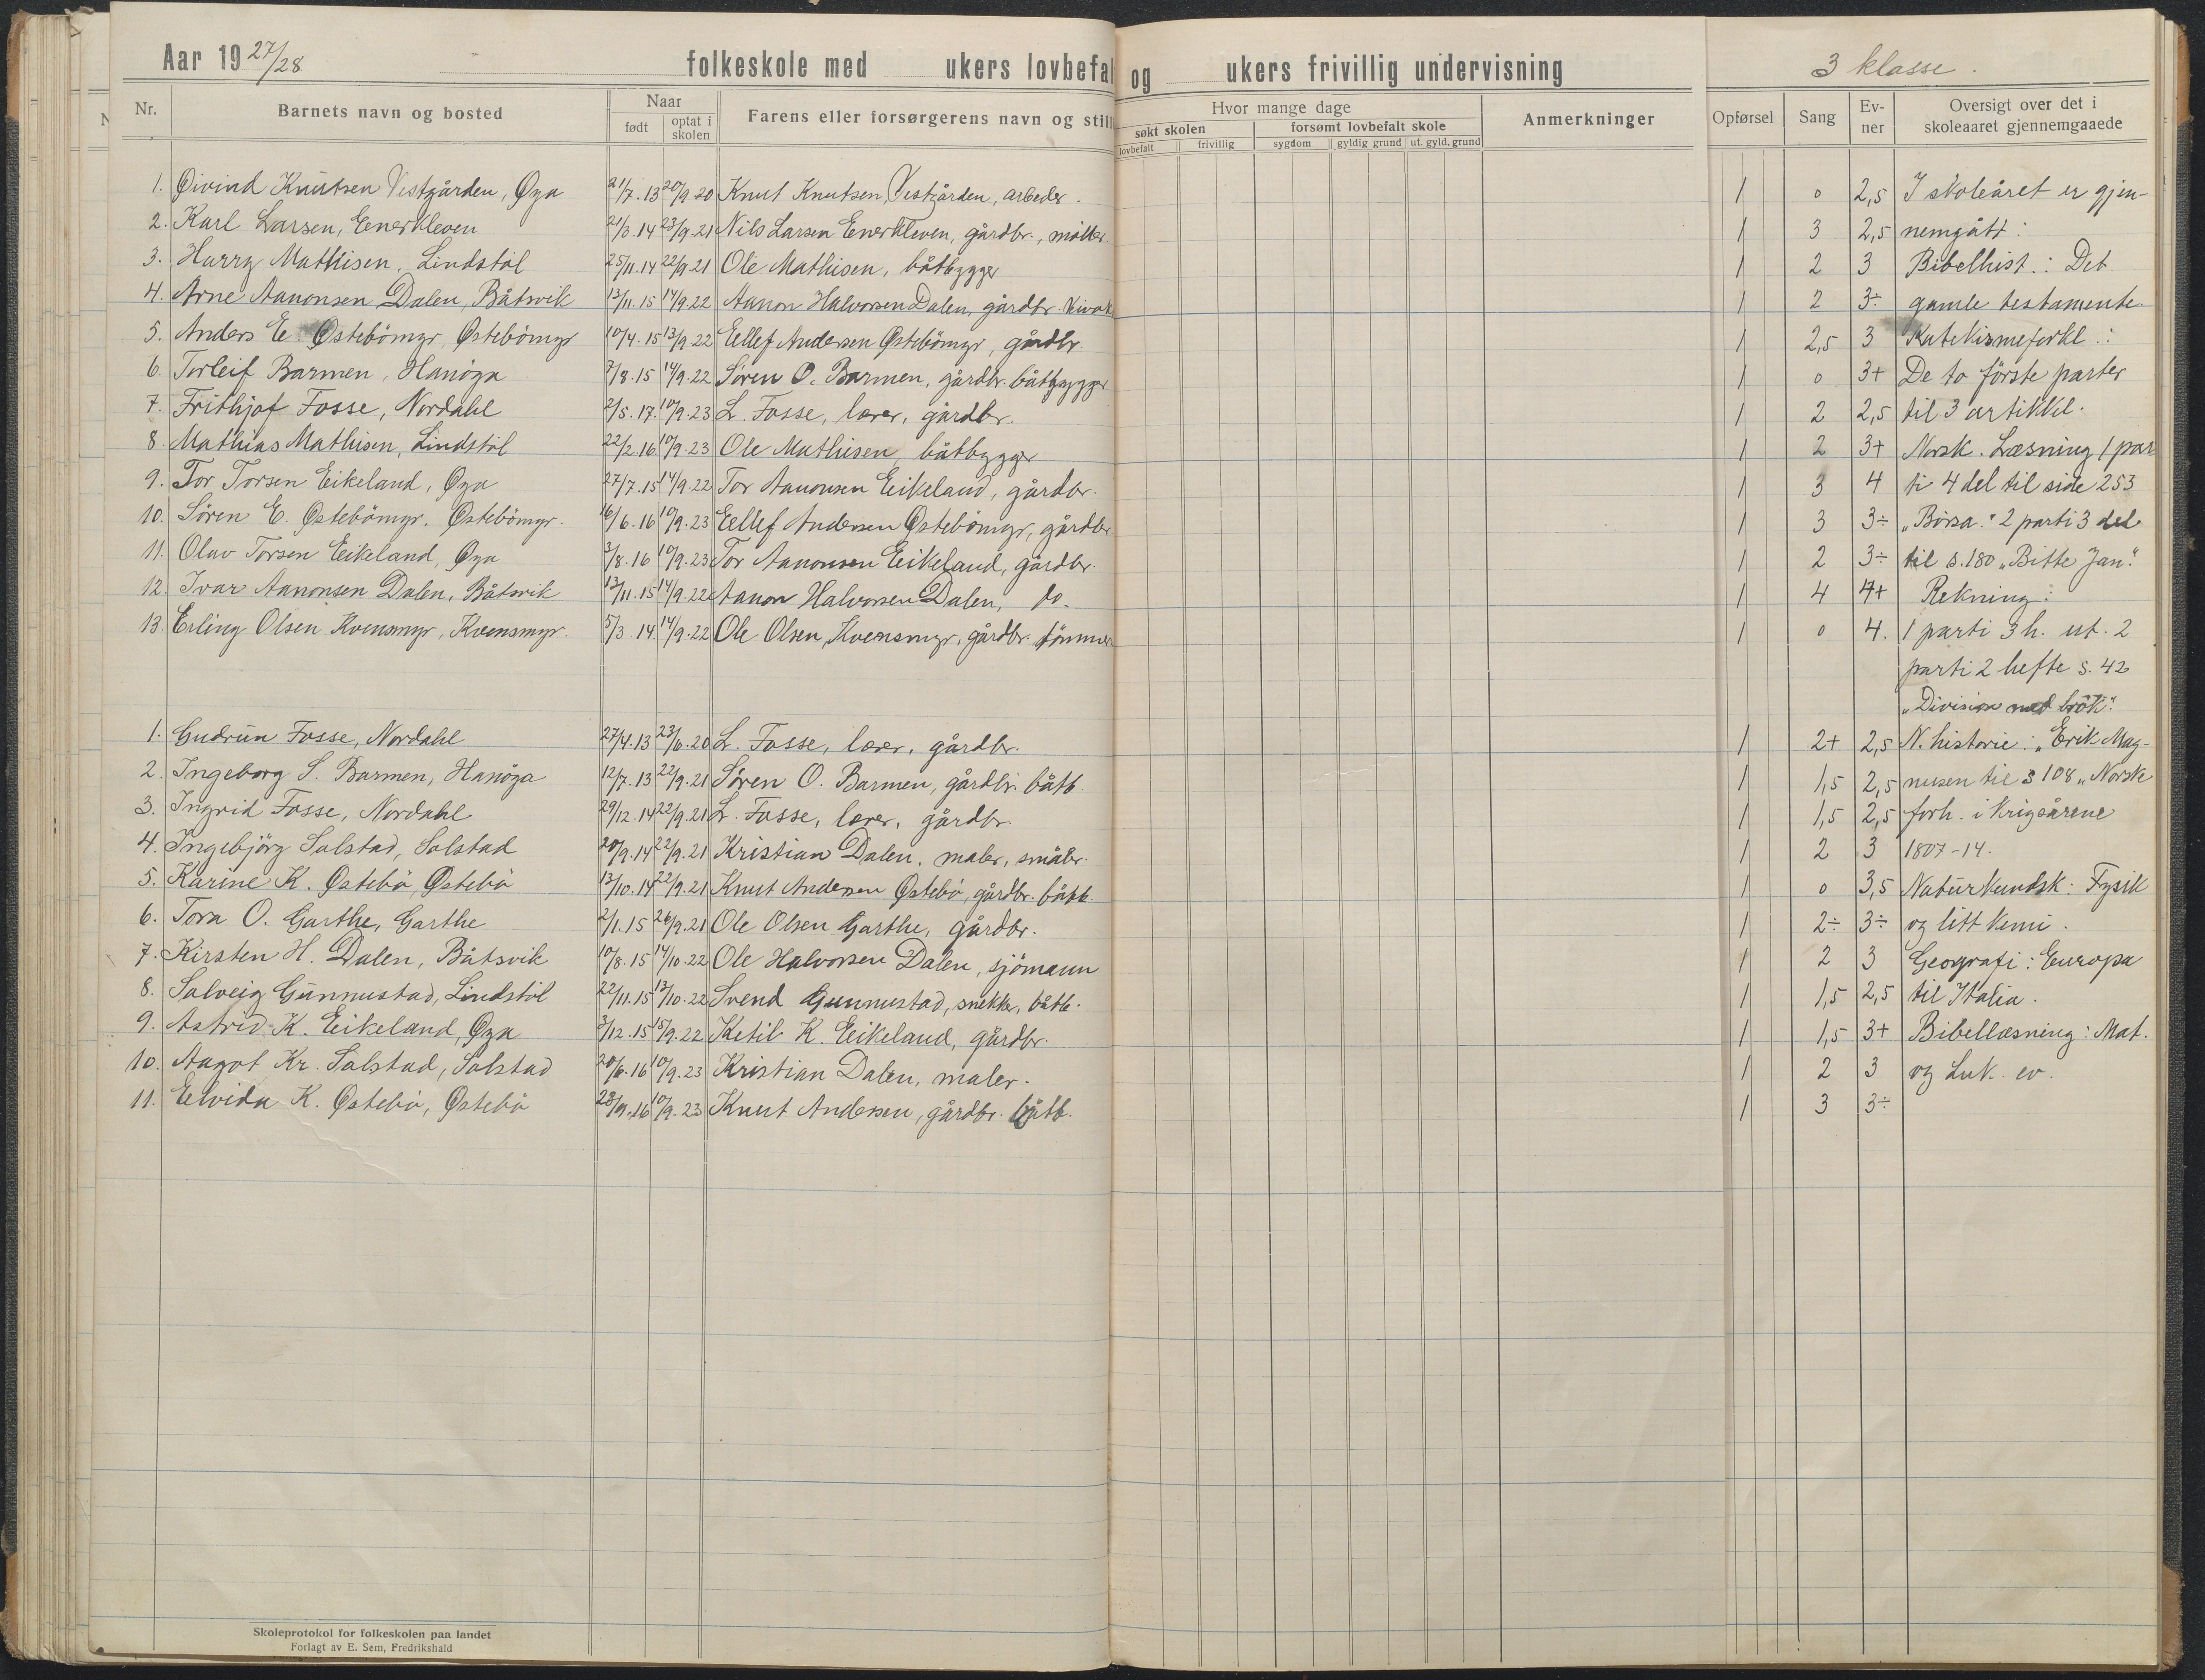 Aar 19 27/28 folkeskole med ukers lovbefal og ukers frivillig undervisning 3 klasse.
Nr. Barnets navn og bosted Naar født optat i skolen Farens eller forsørgerens navn og still Hvor mange dage søkt skolen lovbefalt frivillig forsømt lovbefalt skole sygdom gyldig grund ut. gyld. grund Anmerkninger Opførsel Sang Ev-ner Oversigt over det i skoleaaret gjennemgaaede
1. Øivind Knutsen Vestgården, Øya 21/7.13 20/9 20 Knut Knutsen, Vestgården, arbeder. 1 0 2,5 I skoleåret er gjen-
2. Karl Larsen, Eenerkleven 21/3.14 23/9.21 Nils Larsen Enerkleven, gårdbr., møller. 1 3 2,5 nemgått:
3. Harry Mathisen, Lindstöl 25/11.14 22/9.21 Ole Mathisen, båtbygger 1 2 3 Bibelhist.: Det
4. Arne Aanonsen Dalen, Båtsvik 13/11.15 14/9.22 Aanon Halvorsen Dalen, gårdbr. 1 2 3÷ gamle testamente.
5. Anders E. Østebömyr, Østebömyr 10/4.15 13/9.22 Eellef Andersen Østebömyr, gårdbr. 1 2,5 3 Katekismeforkl.:
6. Torleif Barmen, Hanöya 7/8.15 14/9.22 Sören O. Barmen, gårdbr. båtbygger 1 0 3+ De to förste parter
7. Frithjof Fosse, Nordahl 2/5.17. 10/9.23 L. Fosse, lærer, gårdbr. 1 2 2,5 til 3 artikkel.
8. Mathias Mathisen, Lindstöl 22/2.16 10/9.23 Ole Mathisen, båtbygger 1 2 3+ Norsk. Læsning 1 par
9. Tor Torsen Eikeland, Øya 27/7.15 14/9.22 Tor Aanonsen Eikeland, gårdbr. 1 3 4 ti 4 del til side 253
10. Sören E. Østebömyr, Østebömyr. 16/6.16 10/9.23 Eellef Andersen Østebömyr, gårdbr 1 3 3÷ „Börsa.“ 2 parti 3 del
11. Olav Torsen Eikeland, Øya 3/8.16 10/9.23 Tor Aanonsen Eikeland, gårdbr. 1 2 3÷ til s. 180 „Bitte Jan“.
12. Ivar Aanonsen Dalen, Båtsvik 13/11.15 14/9.22 Aanon Halvorsen Dalen, do. 1 4 4+ Rekning:
13. Erling Olsen Kvensmyr, Kvensmyr. 5/3.14. 14/9.22 Ole Olsen, Kvensmyr, gårdbr. tömmer 1 0 4. 1 parti 3 h. ut. 2
parti 2 hefte s. 42
„Division med brök“.
1. Gudrun Fosse, Nordahl 27/4.13 23/6.20 L. Fosse, lærer, gårdbr. 1 2+ 2,5 N. historie: „Erik Mag-
2. Ingeborg S. Barmen, Hanöya 12/7.13 22/9.21 Sören O. Barmen, gårdbr. båtb. 1 1,5 2,5 nusen til s 108 „Norske
3. Ingrid Fosse, Nordahl 29/12.14 22/9.21 L. Fosse, lærer, gårdbr. 1 1,5 2,5 forh. i krigsårene
4. Ingebjörg Salstad, Salstad 20/9.14 22/9.21 Kristian Dalen, maler, småbr. 1 2 3 1807-14.
5. Karine K. Østebö, Østebö 13/10.14 22/9.21 Knut Andersen Østebö, gårdbr. båtb. 1 0 3,5 Naturkundsk: Fysik
6. Tora O. Garthe, Garthe 2/1.15 26/9.21 Ole Olsen Garthe, gårdbr. 1 2÷ 3÷ og litt kemi.
7. Kirsten H. Dalen, Båtsvik 10/8.15 14/10.22 Ole Halvorsen Dalen, sjömann 1 2 3 Geografi: Europa
8. Solveig Gunnustad, Lindstöl 22/11.15 13/10.22 Svend Gunnustad, snekker, båtb. 1 1,5 2,5 til Italia.
9. Astrid K. Eikeland, Øya 3/12.15 15/9.22 Ketil K. Eikeland, gårdbr. 1 1,5 3+ Bibellæsning: Mat.
10. Aagot Kr. Salstad, Salstad 20/6.16 10/9.23 Kristian Dalen, maler. 1 2 3 og Luk. ev.
11. Elvida K. Østebö, Østebö 10/9.23 Knut Andersen, gårdbr. båtb. 1 3 3÷
Skoleprotokol for folkeskolen paa landet
Forlagt av E. Sem, Fredrikshald